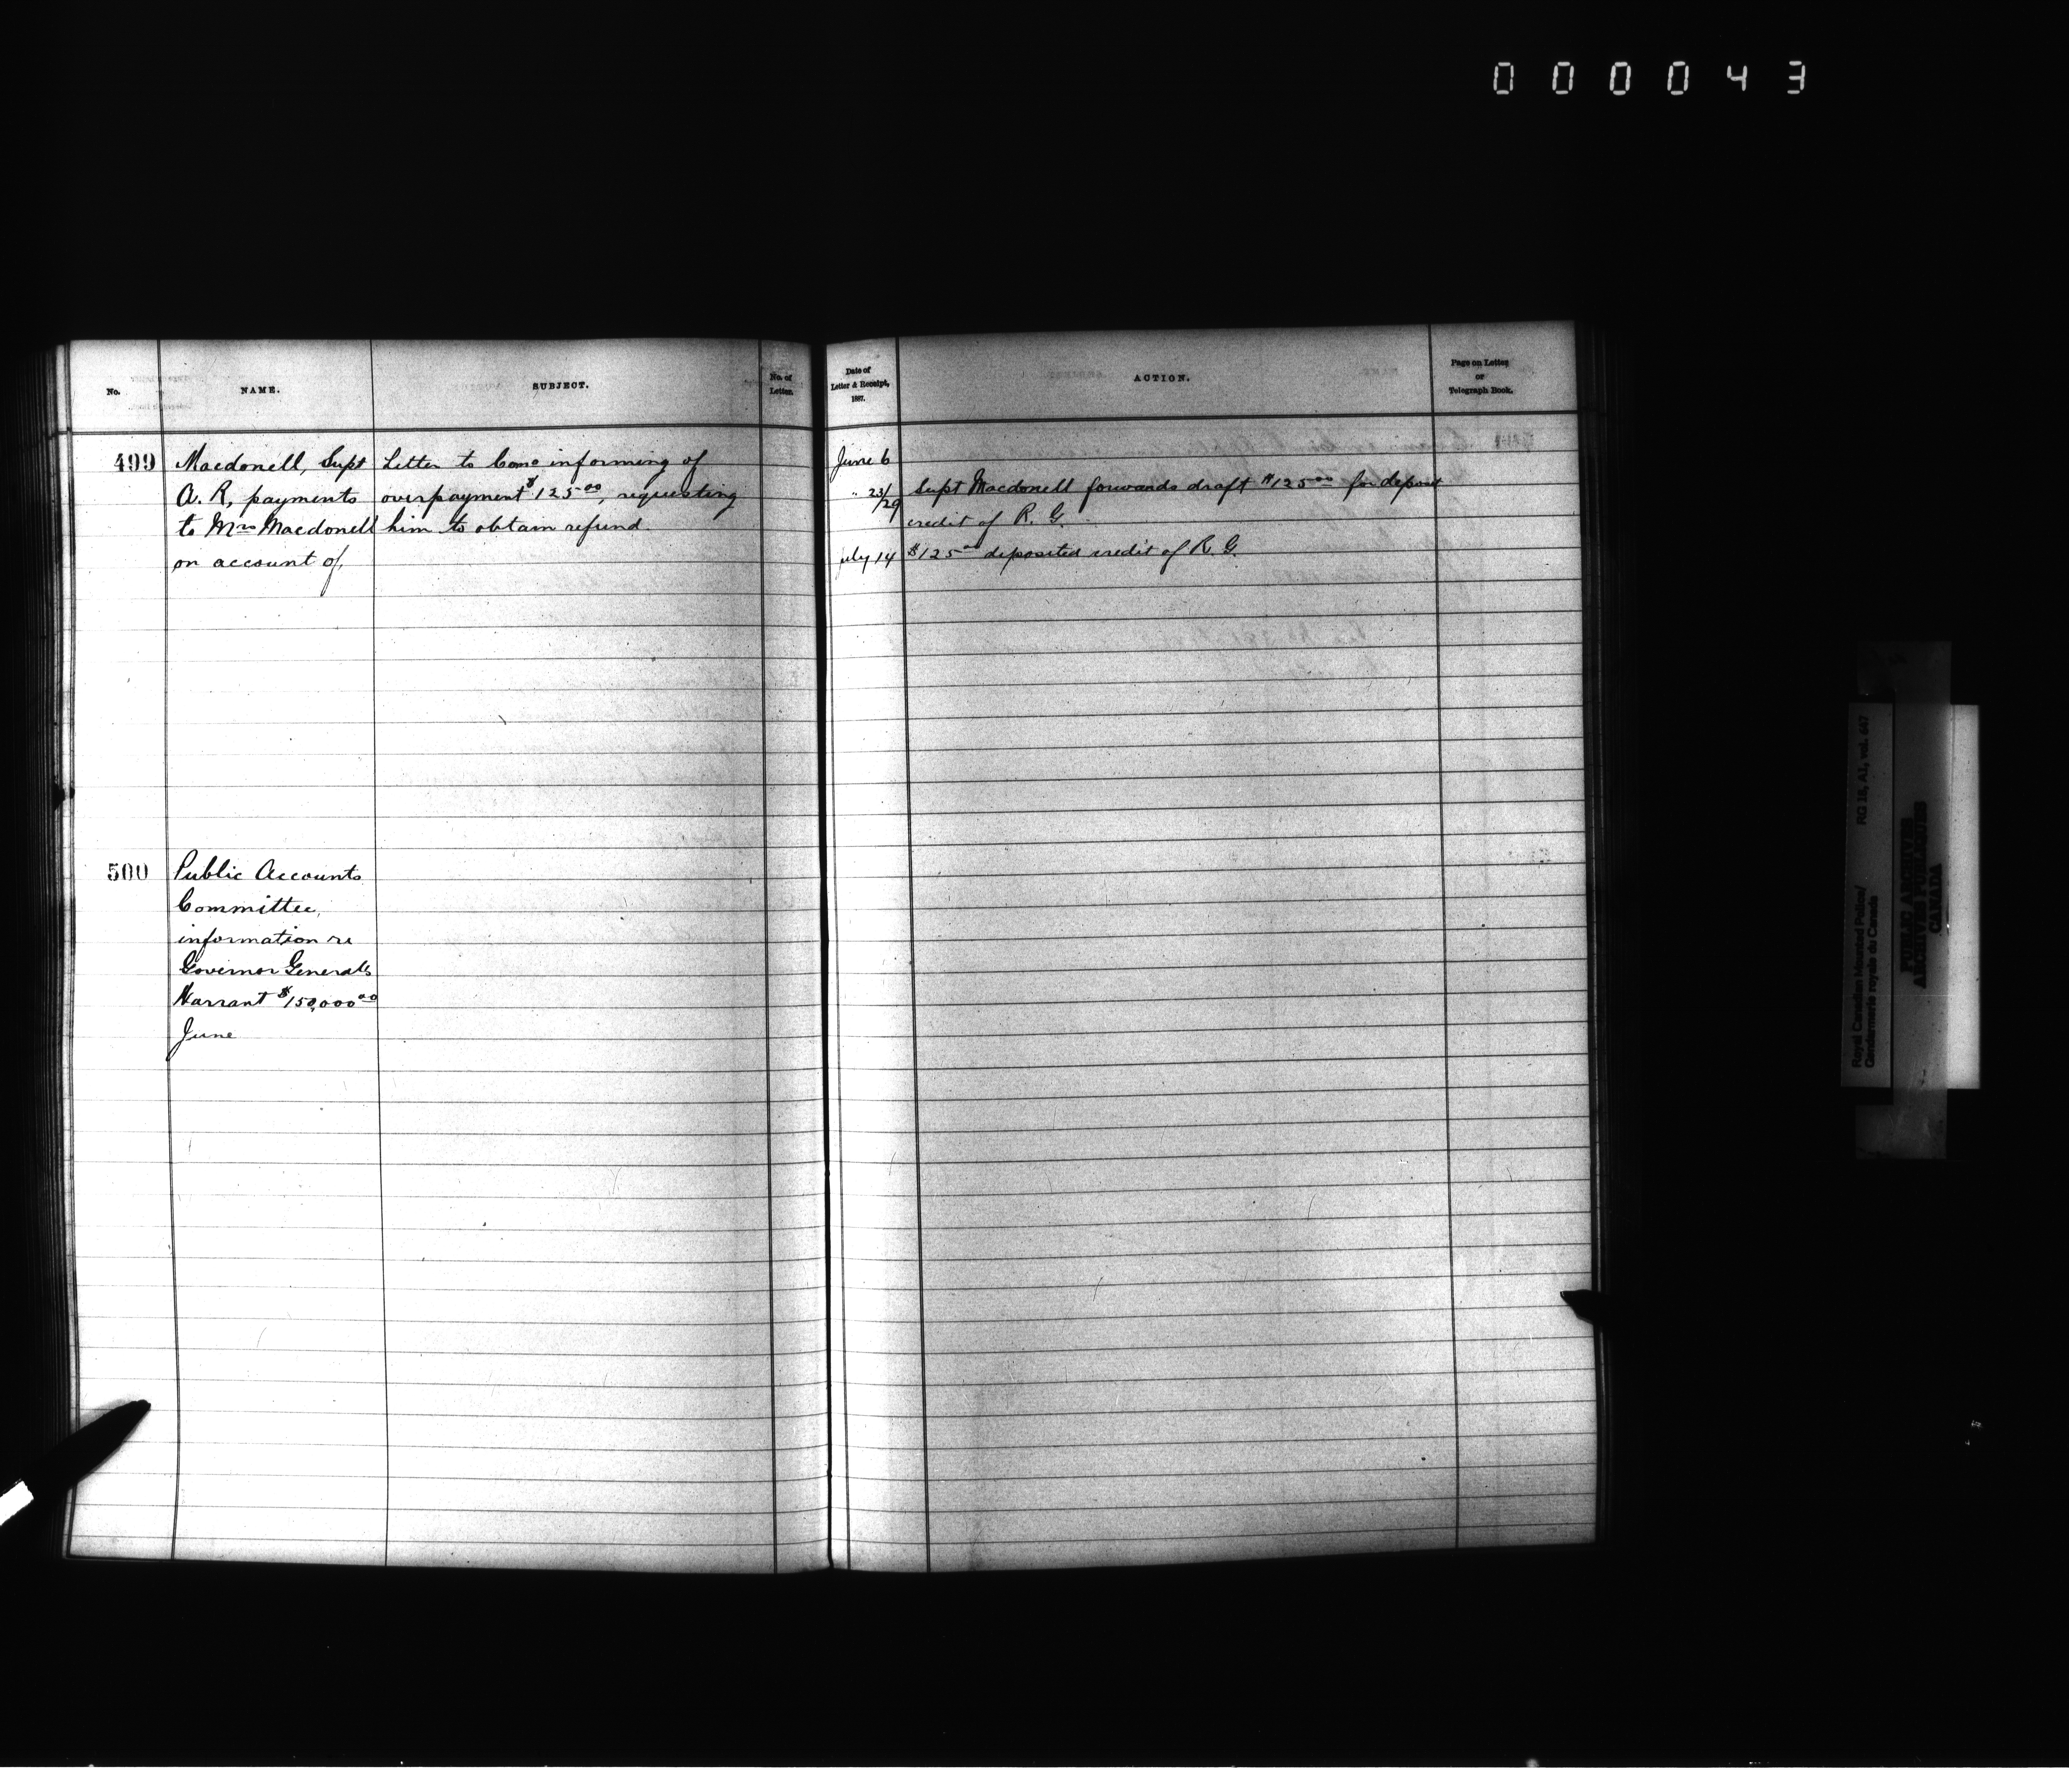 000043
No.
NAME.
SUBJECT.
No. of
Letter.
Date of
Letter & Receipt,
1887.
ACTION.
Page on Letter
or
Telegraph Book.
499
Macdonell, Supt
A. R, payments
to Mrs Macdonell
on account of,
Letter to Comr informing of
overpayment $125 00, requesting
him to obtain refund.
June 6
" 23/29
Supt Macdonell forwards draft $125 00 for deposit
credit of R. G.
July 14
$125 00 deposited credit of R. G.
500
Public Accounts
Committee,
information re
Governor Generals
Warrant $150,000 00
June
Royal Canadian Mounted Police/
Gendarmerie royale du Canada
RG 18, A1, vol. 647
PUBLIC ARCHIVES
ARCHIVES PUBLIQUES
CANADA